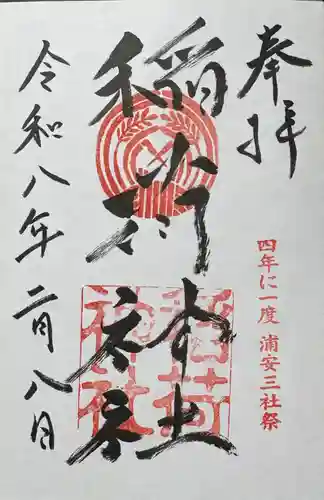 奉拝
四年に一度 浦安三社祭
稲荷神社
稲荷
神社
令和八年二月八日